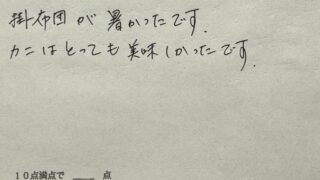 掛布団が暑かったです.
カニはとっても美味しかったです.
10点満点で ___ 点